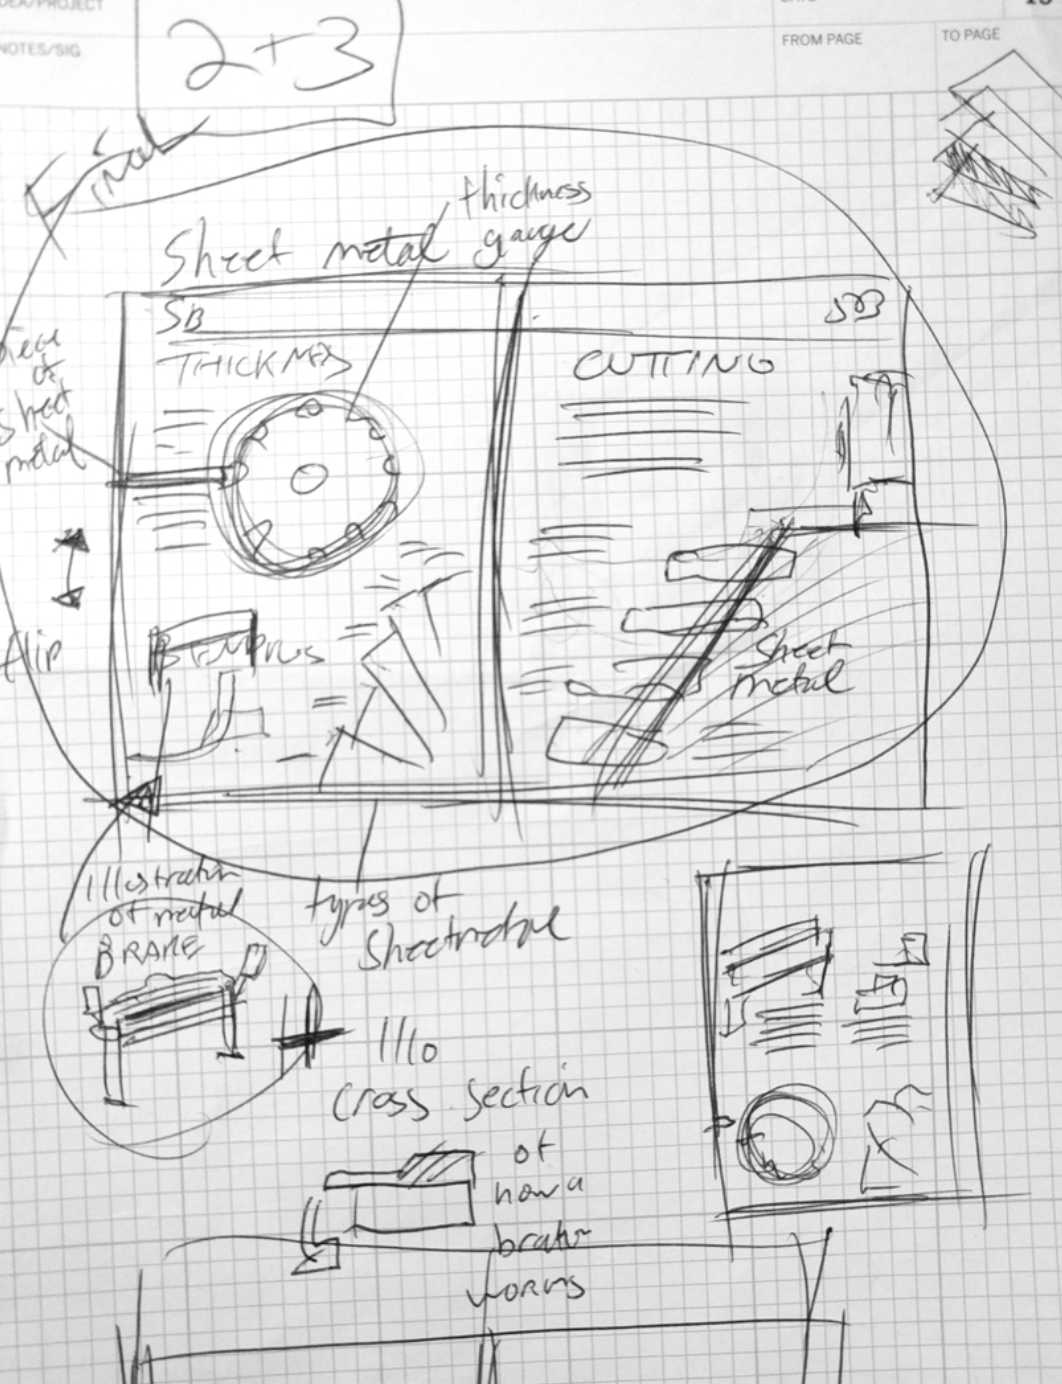 IDEA/PROJECT
NOTES/SIG
FROM PAGE
TO PAGE
2+3
Final
thickness
gauge
Sheet metal
SB
SB
THICKNESS
CUTTING
Piece
of
sheet
metal
flip
BENDING
Sheet
metal
Illustration
of metal
BRAKE
types of
Sheetmetal
Illo
cross section
of
how a
works